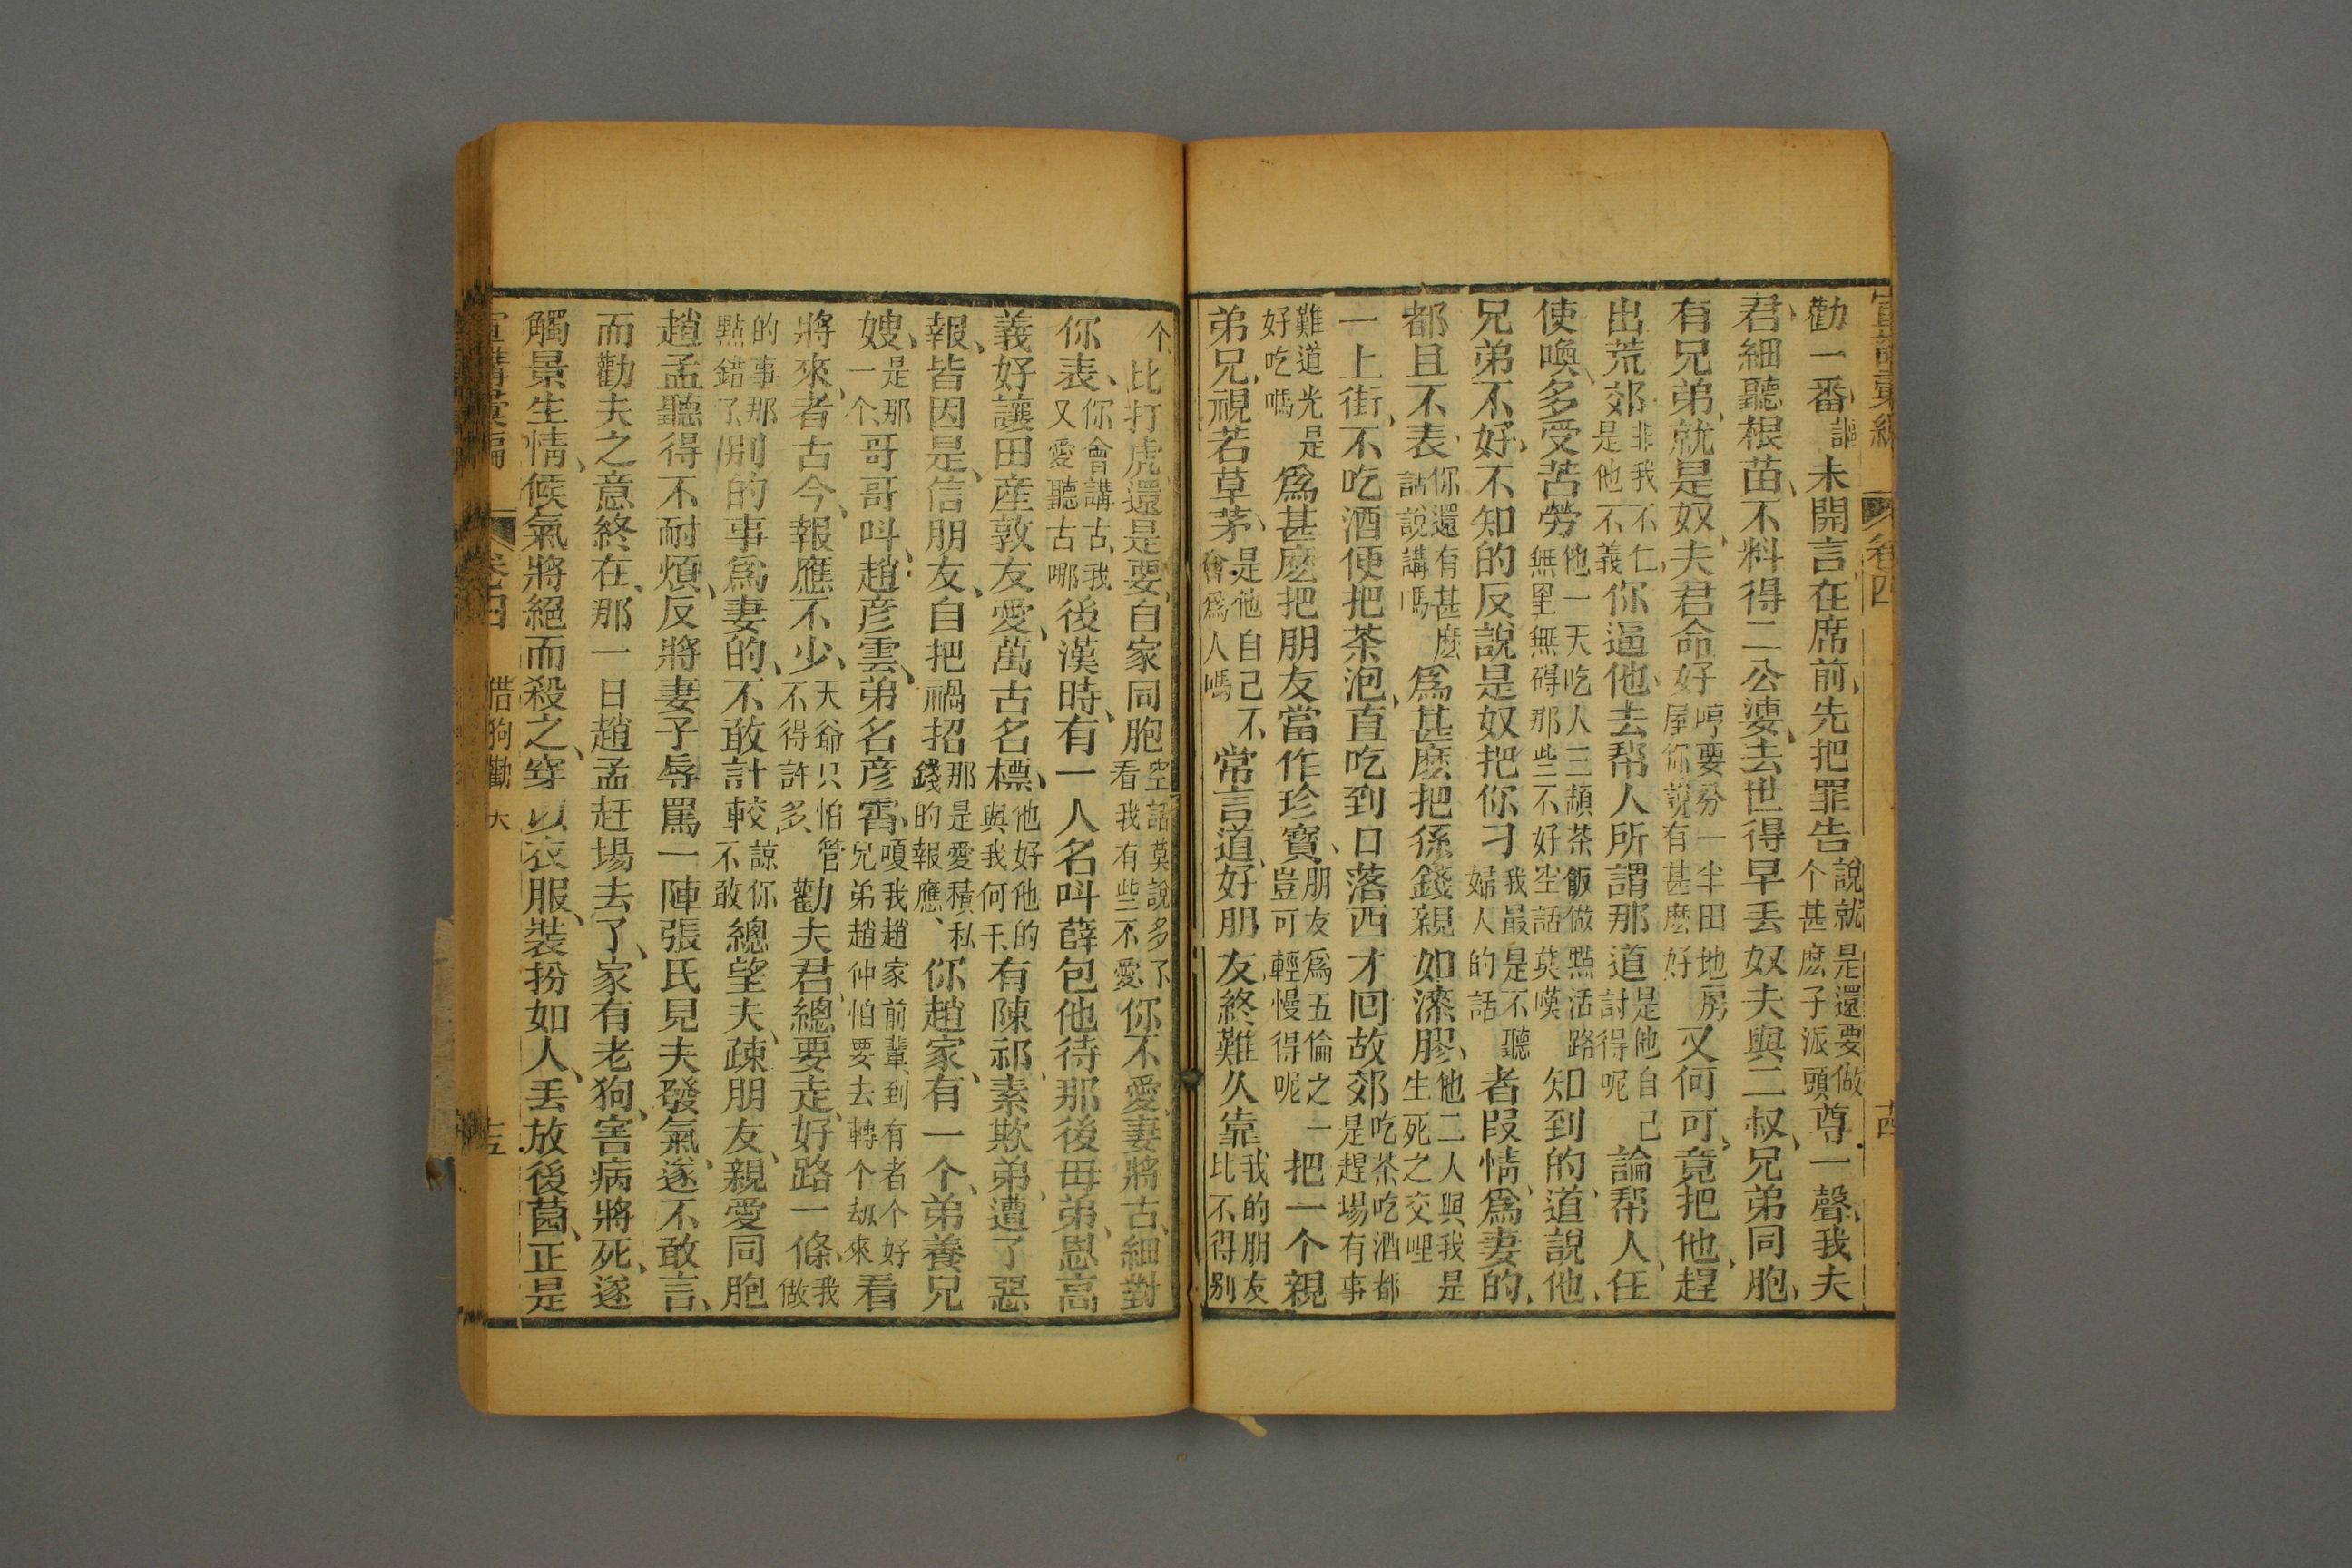 宣講彙編 卷四 十四
勸一番、謳未開言、在席前、先把罪告說就是還要做个甚麽子派頭尊一聲、我夫
君、細聽根苗、不料得二公婆、去世得早丟奴夫與二叔、兄弟同胞、
有兄弟、就是奴、夫君命好哼要分一半田地房屋你說有甚麽好又何可、竟把他、趕
出荒郊、非我不仁、是他不義你逼他、去帮人所謂那道是他自己討得呢論帮人、任
使喚、多受苦勞他一天吃人三頓茶飯做點活路無罣無碍那些不好空話莫嘆知到的、道說他、
兄弟不好、不知的反說是奴把你刁我最是不聽婦人的話者叚情、爲妻的、
都且不表、你還有甚麽話說講嗎爲甚麽把係錢親如漆膠、他二人與我是生死之交哩
一上街、不吃酒便把茶泡、直吃到口落西才囘故郊吃茶吃酒都是趕場有事
難道光是好吃嗎爲甚麽把朋友當作珍寶、朋友爲五倫之一豈可輕慢得呢把一个親
弟兄、視若草茅、是他自己不會爲人嗎常言道、好朋友、終難久靠我的朋友比不得别
个、比打虎、還是要、自家同胞空話莫說多了看我有些不愛你不愛、妻將古、細對
你表、你會講古、我又愛聽古哪後漢時、有一人名呌薛包他待那後母弟、恩高
義好讓田産敦友愛、萬古名標、他好他的與我何干、有陳祁、素欺弟、遭了惡
報、皆因是、信朋友、自把禍招那是愛積私錢的報應、你趙家、有一个、弟養兄
嫂、是那一个、哥哥呌、趙彦雲、弟名彦霄、嗄我趙家前輩到有者个好兄弟趙仲怕要去轉个刼來看
將來、者古今、報應不少、天爺只怕管不得許多、勸夫君、總要走、好路一條、我做
的事那點錯了、别的事爲妻的、不敢計較、諒你不敢總望夫、疎朋友、親愛同胞
趙孟聽得不耐煩、反將妻子辱罵一陣張氏見夫發氣、遂不敢言、
而勸夫之意終在、那一日趙孟赶場去了、家有老狗、害病將死、遂
觸景生情、候氣將絕而殺之、穿以衣服、裝扮如人、丟放後園、正是
宣講彙編 卷四 借狗勸夫 十五